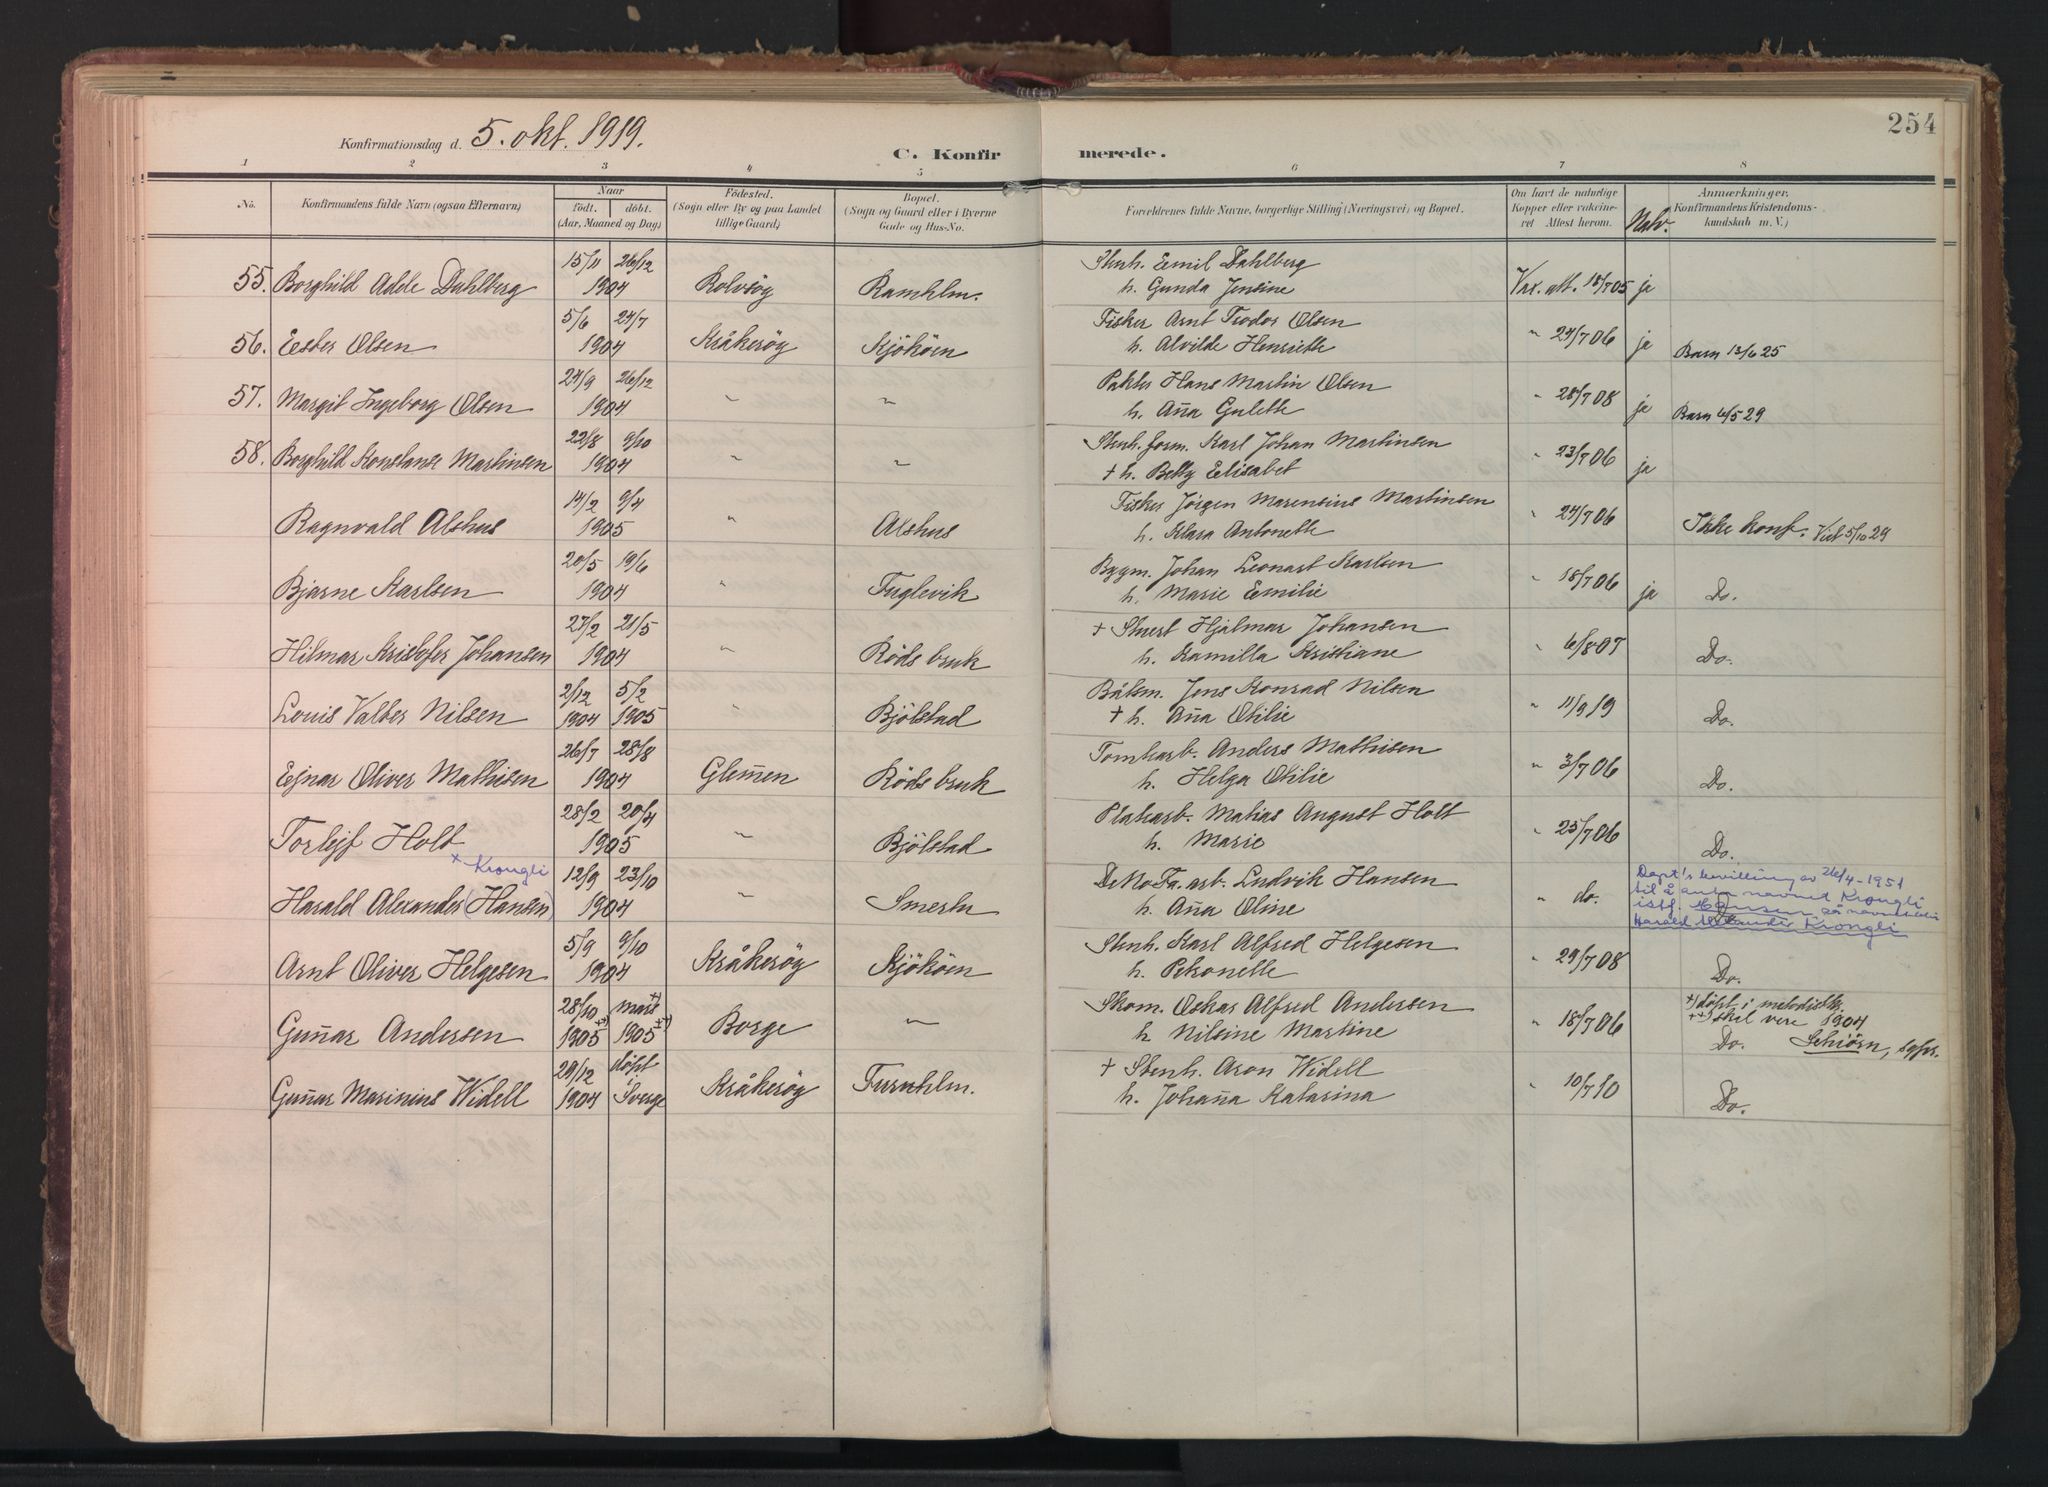 254
Konfirmationsdag d. 5. okt. 1919.
C. Konfirmerede.
1 2 3 4 5 6 7 8
No. Konfirmandens fulde Navn (ogsaa Efternavn) Naar født. døbt. (Aar, Maaned og Dag) Fødested. (Sogn eller By og paa Landet tillige Gaard) Bopæl. (Sogn og Gaard eller i Byerne Gade og Hus-No. Forældrenes fulde Navne, borgerlige Stilling (Næringsvei) og Bopæl. Om havt de naturlige Kopper eller vakcineret Attest herom. Natv. Anmærkninger. Konfirmandens Kristendomskundskab m. V.)
15/11 26/12 Stenh. Emil Dahlberg
55. Borghild Adele Dahlberg 1904 Rolvsøy Ramhlm. h. Gunda Jensine Vax. att. 18/7 05 ja
5/6 24/7 Fisker Arnt Teodor Olsen
56. Ester Olsen 1904 Kråkerøy Kjøkøen h. Alvilde Henriette " 24/7 06 ja Barn 13/6 25
24/9 26/12 Pakter Hans Martin Olsen
57. Margit Ingeborg Olsen 1904 " " h. Aña Gulette " 28/7 08 ja Barn 4/5 29
22/8 9/10 Stenh. form. Karl Johan Martinsen
58. Borghild Konstanse Martinsen 1904 " " + h. Betty Elisabet " 23/7 06 ja
14/2 9/4 Fisker Jørgen Marensius Martinsen
Ragnvald Alshus 1905 " Alshus h. Klara Antonette " 24/7 06 Ikke konf. Viet 5/10 29
20/5 19/6 Bygm. Johan Leonart Karlsen
Bjarne Karlsen 1904 " Fuglevik h. Marie Emilie " 18/7 06 ja Do.
27/2 21/5 + Stuert Hjalmar Johansen
Hilmar Kristofer Johansen 1904 " Røds bruk h. Kamilla Kristiane " 6/8 07 Do.
2/12 5/2 Båtsm. Jens Konrad Nilsen
Louis Valter Nilsen 1904 1905 " Bjølstad + h. Aña Otilie " 11/9 19 Do.
26/7 28/8 Tomtarb. Anders Mathisen
Ejnar Oliver Mathisen 1904 Glem̃en Røds bruk h. Helga Otilie " 3/7 06 Do.
28/2 20/4 Platarb. Matias August Holt
Torlejf Holt 1905 " Bjølstad h. Marie " 25/7 06 Do.
+ Krongli 12/9 23/10 DeNoFa. arb. Ludvik Hansen
Harald Alexander (Hansen) 1904 " Smertu h. Aña Oline " do. Do.
Dept's bevilling av 26/4-1951
til å anta navnet Krongli
istf. Hansen
Harald Alexander Krongli
5/9 9/10 Stenh. Karl Alfred Helgesen
Arnt Oliver Helgesen 1904 Kråkerøy Kjøkøen h. Petronelle " 29/7 08 Do.
28/10 mars +) Skom. Oskar Alfred Andersen +) døpt i metodistk.
Guñar Andersen 1905 ++) 1905 ++) Borge " h. Nilsine Martine " 18/7 06 ++) skil vere 1904
Do. Schiørn, sgpr.
29/12 døpt + Stenh. Aron Widell
Guñar Marinius Widell 1904 Sverge Kråkerøy Furuhlm. h. Johaña Katarina " 10/7 10 Do.